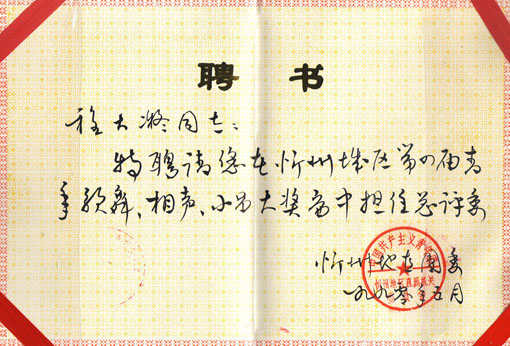 聘书
程大凝同志:
特聘请您在忻州城区第四届青
年歌舞、相声、小品大奖赛中担任总评委
忻州地直团委
一九九零年五月
中国共产主义青年团
忻州地区直属机关